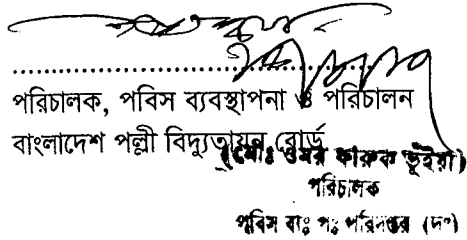 ..........................................
পরিচালক, পবিস ব্যবস্থাপনা ও পরিচালন
বাংলাদেশ পল্লী বিদ্যুতায়ন বোর্ড
(মোঃ ওমর ফারুক ভূঁইয়া)
পরিচালক
পবিস ব্যঃ পঃ পরিদপ্তর (দঃ)